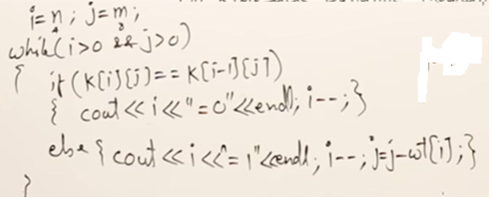 i=n; j=m;
4 8
while(i>0 && j>0)
{ if (K[i][j]==K[i-1][j])
{ cout<<i<<"=0"<<endl; i--;}
else { cout<<i<<"= 1"<<endl; i--; j=j-wt[i];}
}